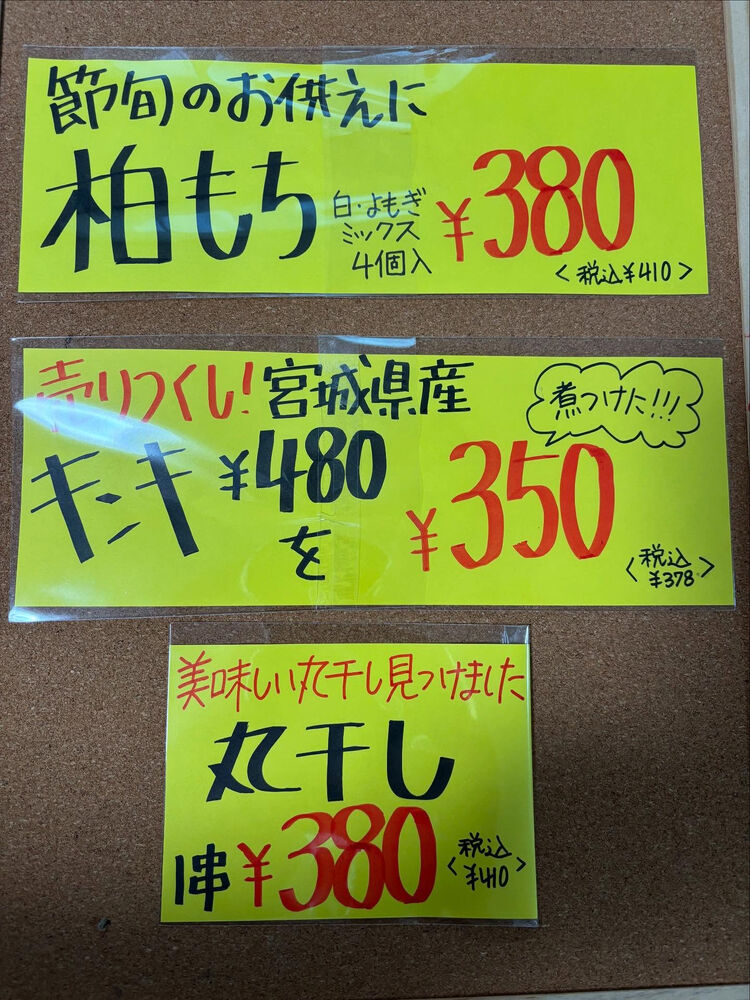 節旬のお供えに
柏もち
白・よもぎ
ミックス
4個入
¥380
<税込¥410>
売りつくし!宮城県産
煮つけた!!!
キンキ ¥480
を
¥350
<税込
¥378>
美味しい丸干し見つけました
丸干し
1串¥380
<税込
¥410>